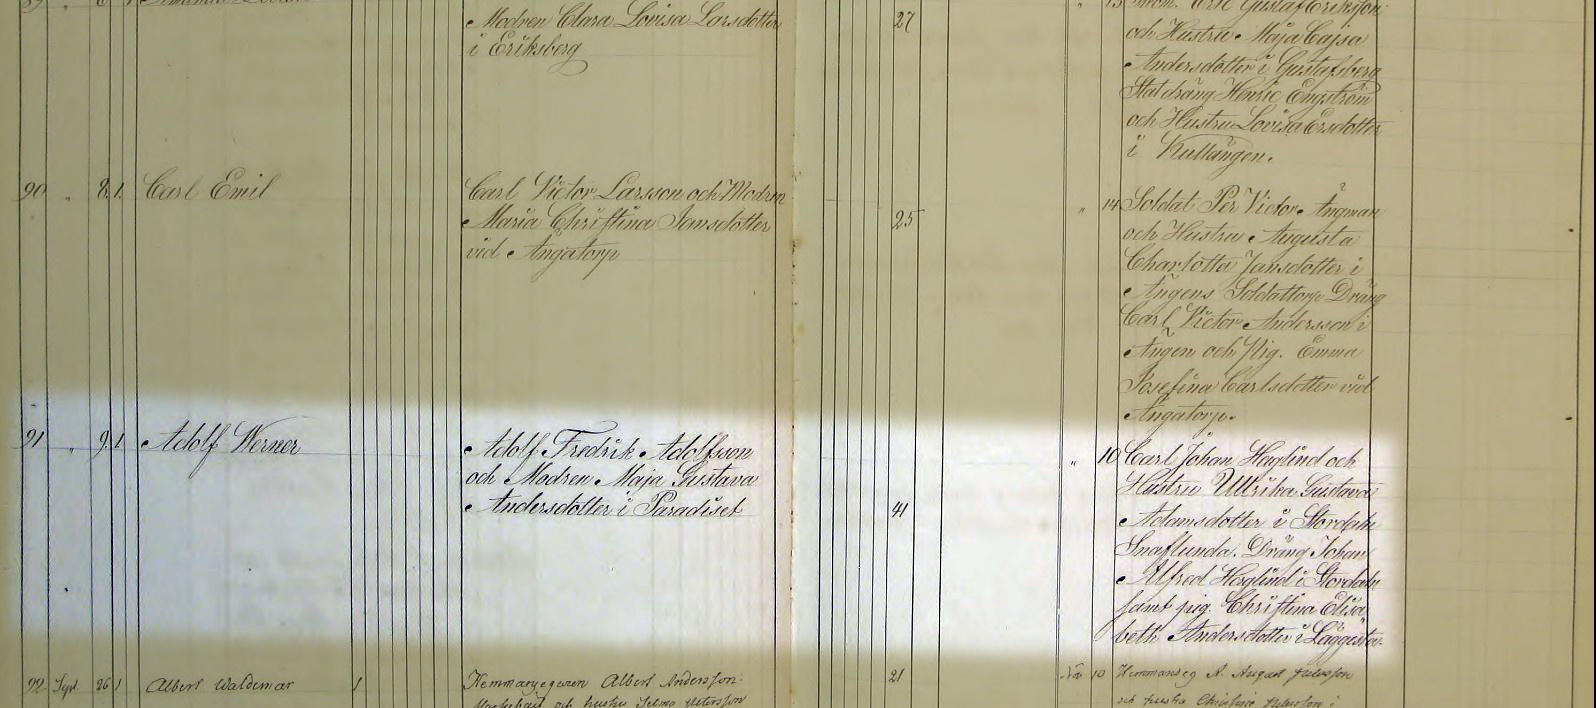 Modren Clara Lovisa Larsdotter
i Eriksberg
27
" 13 Eric Gustaf Eriksson
och Hustru Maja Cajsa
Andersdotter i Gustafsberg
Statdräng Henric Engström
och Hustru Lovisa Ersdotter
i Kullängen.
90 " 8. 1. Carl Emil
Carl Victor Larsson och Modren
Maria Christina Jansdotter
vid Ängatorp
25
" 14 Soldat Per Victor Ängman
och Hustru Augusta
Charlotta Jansdotter i
Ängens Soldattorp Dräng
Carl Victor Andersson i
Ängen och Pig. Emma
Josefina Carlsdotter vid
Ängatorp.
91 " 9. 1. Adolf Werner
Adolf Fredrik Adolfsson
och Modren Maja Gustava
Andersdotter i Paradiset
41
" 10 Carl Johan Haglind och
Hustru Ullrika Gustava
Adamsdotter i Stordah
Snaflunda. Dräng Johan
Alfred Haglind i Stordah
samt pig. Christina Elisa
beth Andersdotter i Läggesta.
92 Sept. 26 1 Albert Waldemar 1
Hemmansegaren Albert Andersson
och hustru Selma Petersson
21
10 Hemmanseg A. August
och hustru Christine i